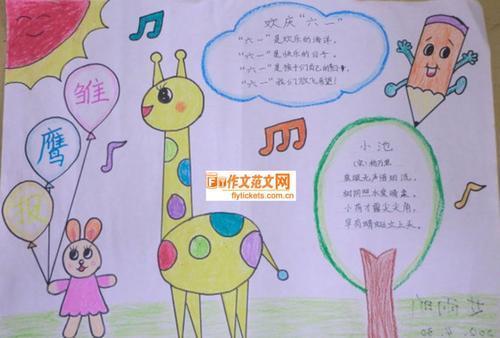 欢庆"六一"
"六一"是欢乐的海洋,
"六一"是快乐的日子,
"六一"是孩子们自己的节日,
"六一"我们放飞希望!
雏
鹰
报
作文范文网
flytickets.com.cn
小池
(宋)杨万里
泉眼无声惜细流,
树阴照水爱晴柔。
小荷才露尖尖角,
早有蜻蜓立上头。